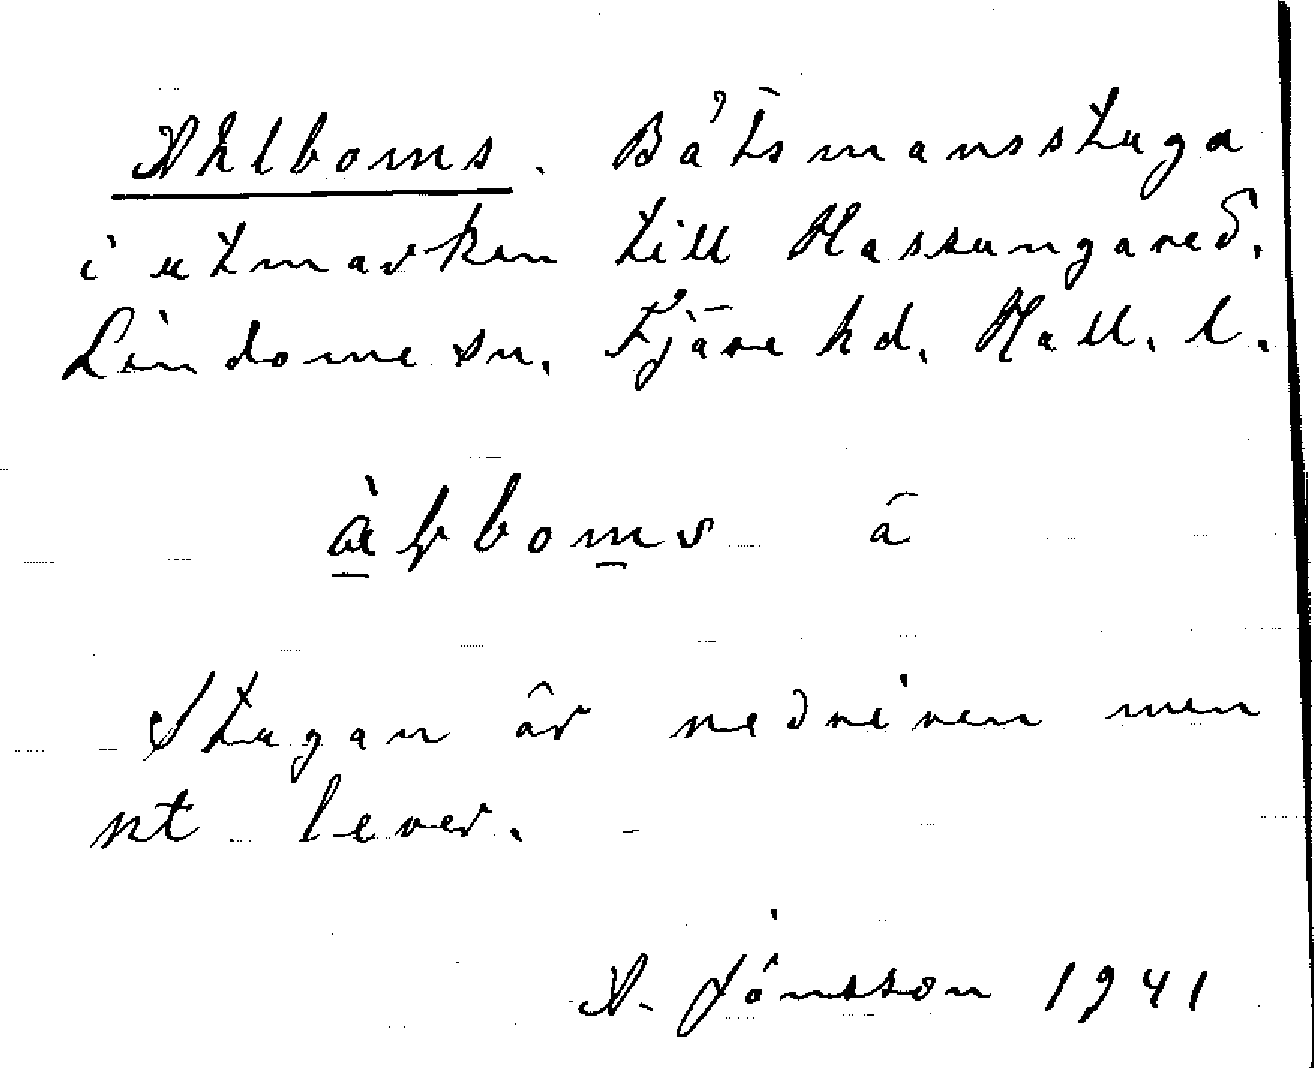 Ahlboms. Båtsmansstuga
i utmarken till Hassungared.
Lindome sn. Fjäre hd. Hall. l.
boms ā
Stugan är nedriven men
nt lever.
A. Jónsson 1941